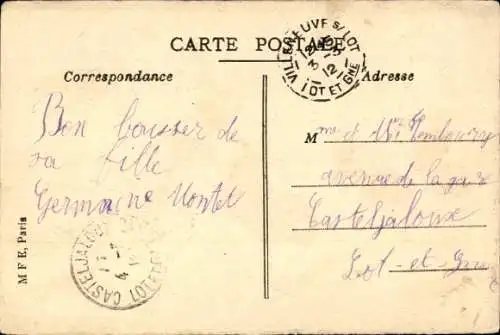 CARTE POSTALE
Correspondance
Adresse
VILLENEUVE S/ LOT
12
3 - 5
12
LOT ET GNE
Bon baiser de
sa fille
Germaine Montet
Mme et Mr
avenue de la gare
Casteljaloux
Lot-et-Gne
CASTELJALOUX
LOT
M F E, Paris